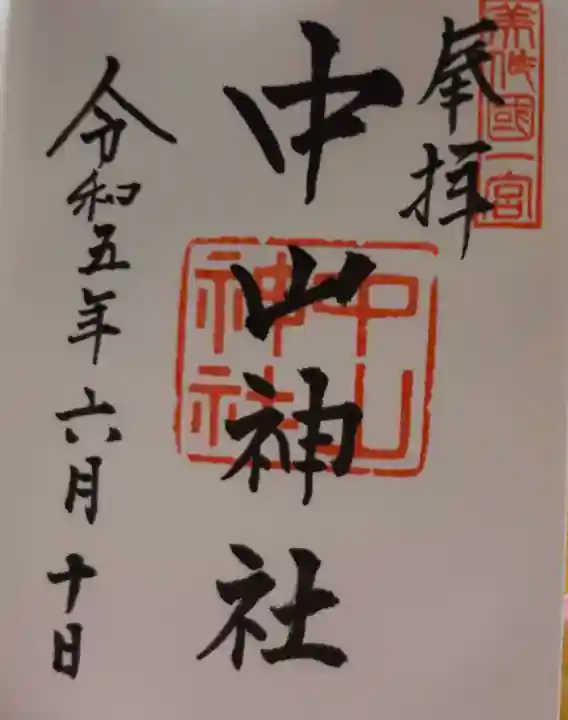 奉拝
美作國一宮
中山神社
中山神社
令和五年六月十日